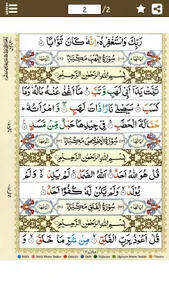 2 /2
رَبِّكَ وَاسْتَغْفِرْهُ ؔ اِنَّهٗ كَانَ تَوَّابًا
سُوْرَةُ اللَّهَبِ مَكِّيَّةٌ
بِسْمِ اللّٰهِ الرَّحْمٰنِ الرَّحِيْمِ
تَبَّتْ يَدَاۤ اَبِيْ لَهَبٍ وَّتَبَّ مَاۤ اَغْنٰى عَنْهُ مَالُهٗ وَمَا
كَسَبَ سَيَصْلٰى نَارًا ذَاتَ لَهَبٍ وَّامْرَاَتُهٗ
حَمَّالَةَ الْحَطَبِ فِيْ جِيْدِهَا حَبْلٌ مِّنْ مَّسَدٍ
سُوْرَةُ الْاِخْلَاصِ مَكِّيَّةٌ
بِسْمِ اللّٰهِ الرَّحْمٰنِ الرَّحِيْمِ
قُلْ هُوَ اللّٰهُ اَحَدٌ اَللّٰهُ الصَّمَدُ لَمْ يَلِدْ وَلَمْ
يُوْلَدْ وَلَمْ يَكُنْ لَّهٗ كُفُوًا اَحَدٌ
سُوْرَةُ الْفَلَقِ مَكِّيَّةٌ
بِسْمِ اللّٰهِ الرَّحْمٰنِ الرَّحِيْمِ
قُلْ اَعُوْذُ بِرَبِّ الْفَلَقِ مِنْ شَرِّ مَا خَلَقَ وَ